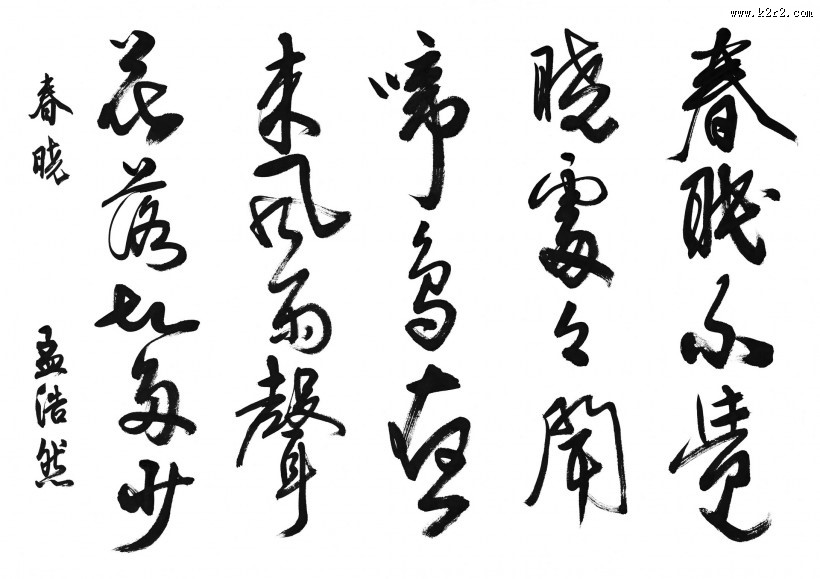 www.k2r2.com
春眠不覺
晓處々聞
啼鳥夜
来風雨聲
花落知多少
春晓 孟浩然